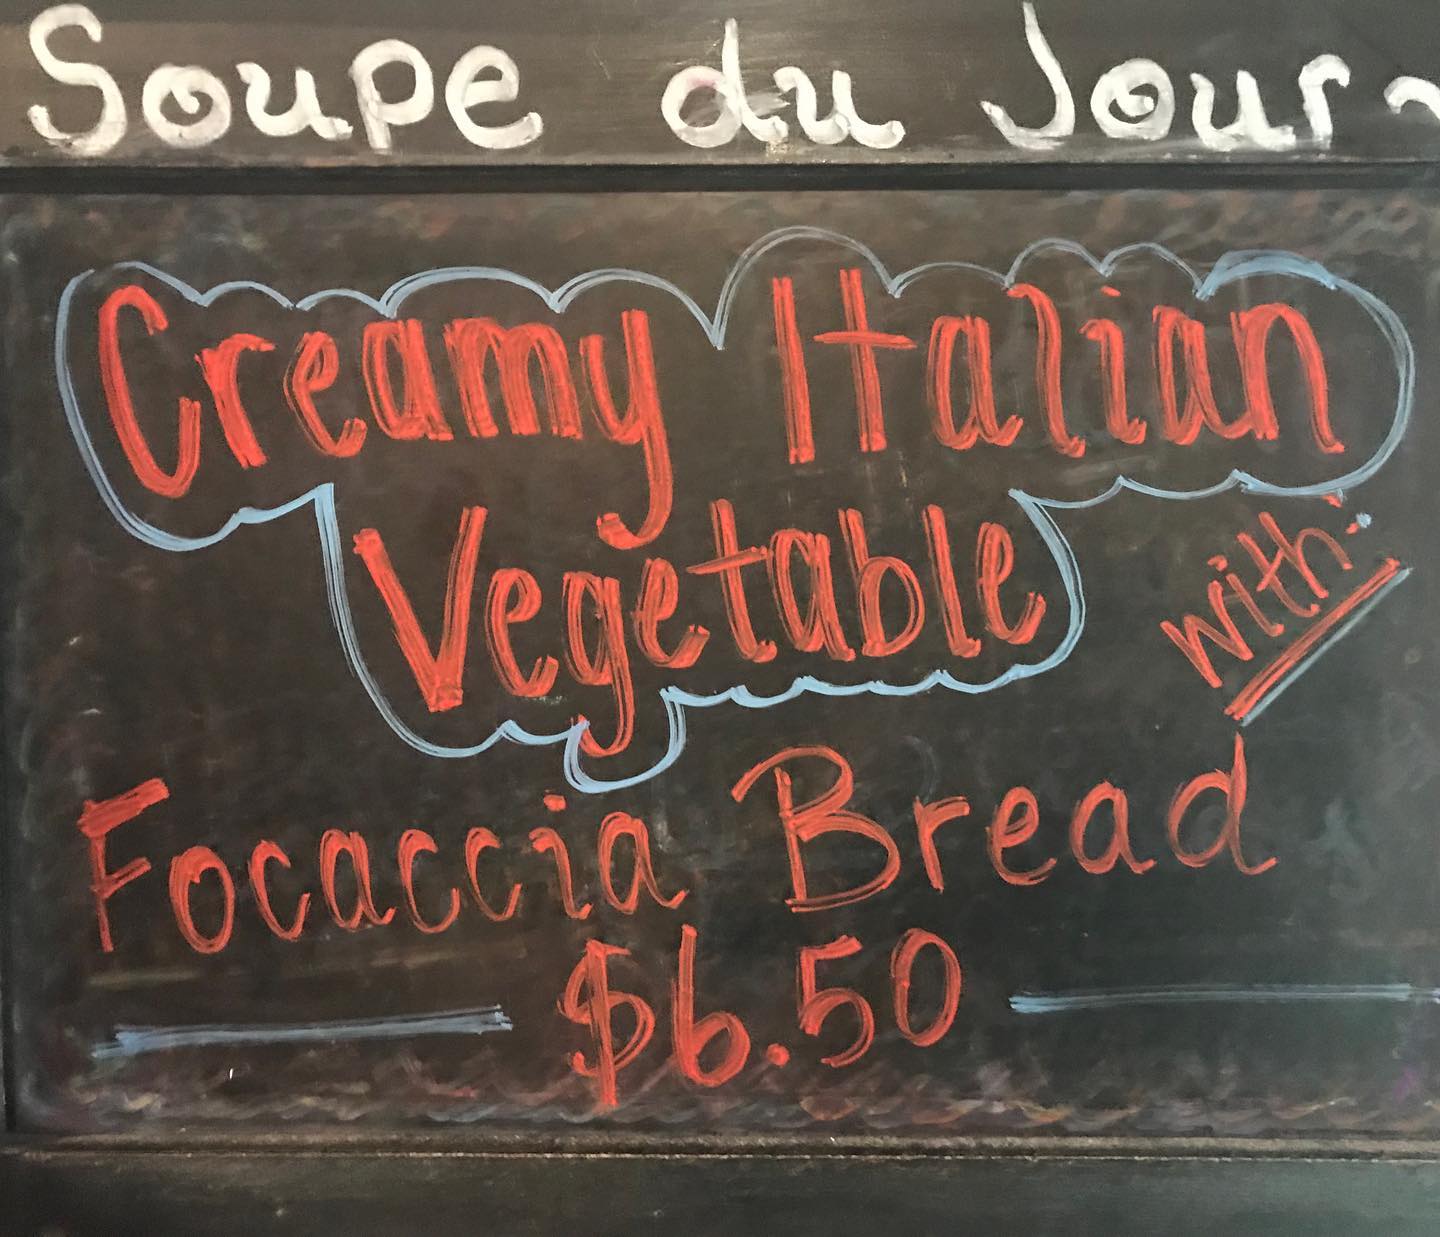 Soupe du Jour~
Creamy Italian
Vegetable
with:
Focaccia Bread
$6.50